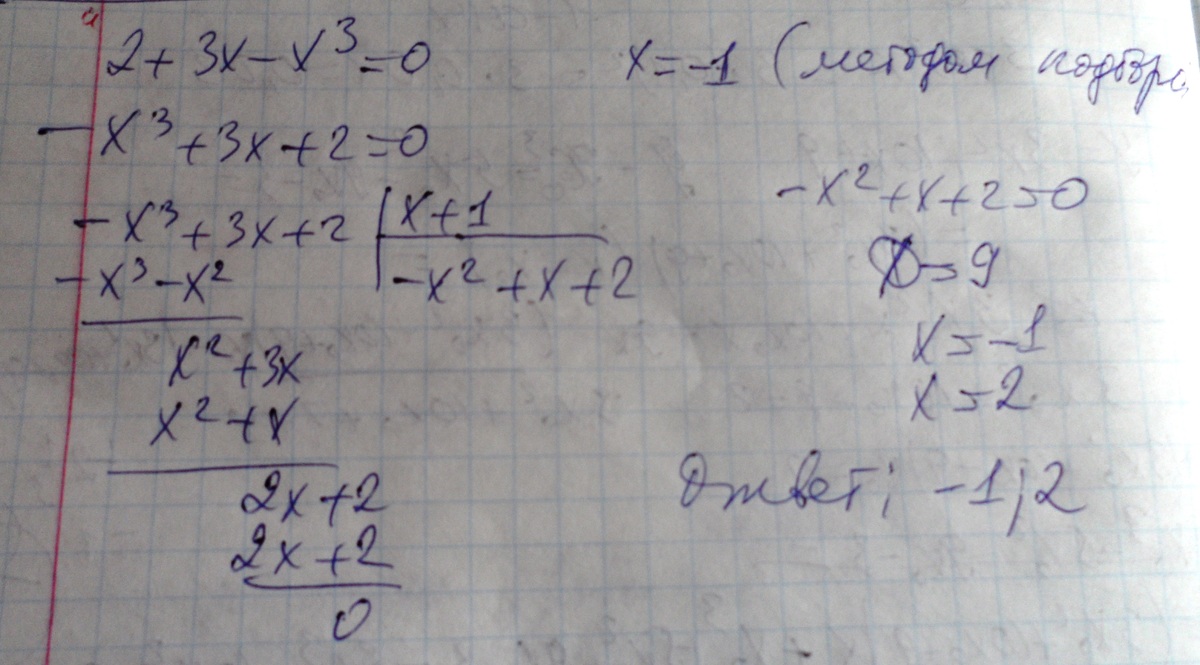 2+3x-x³=0
x=-1 (методом
-x³+3x+2=0
-x³+3x+2 | x+1
-x³-x²
-x²+x+2
x²+3x
x²+x
2x+2
2x+2
0
-x²+x+2=0
D=9
x=-1
x=2
Ответ: -1;2